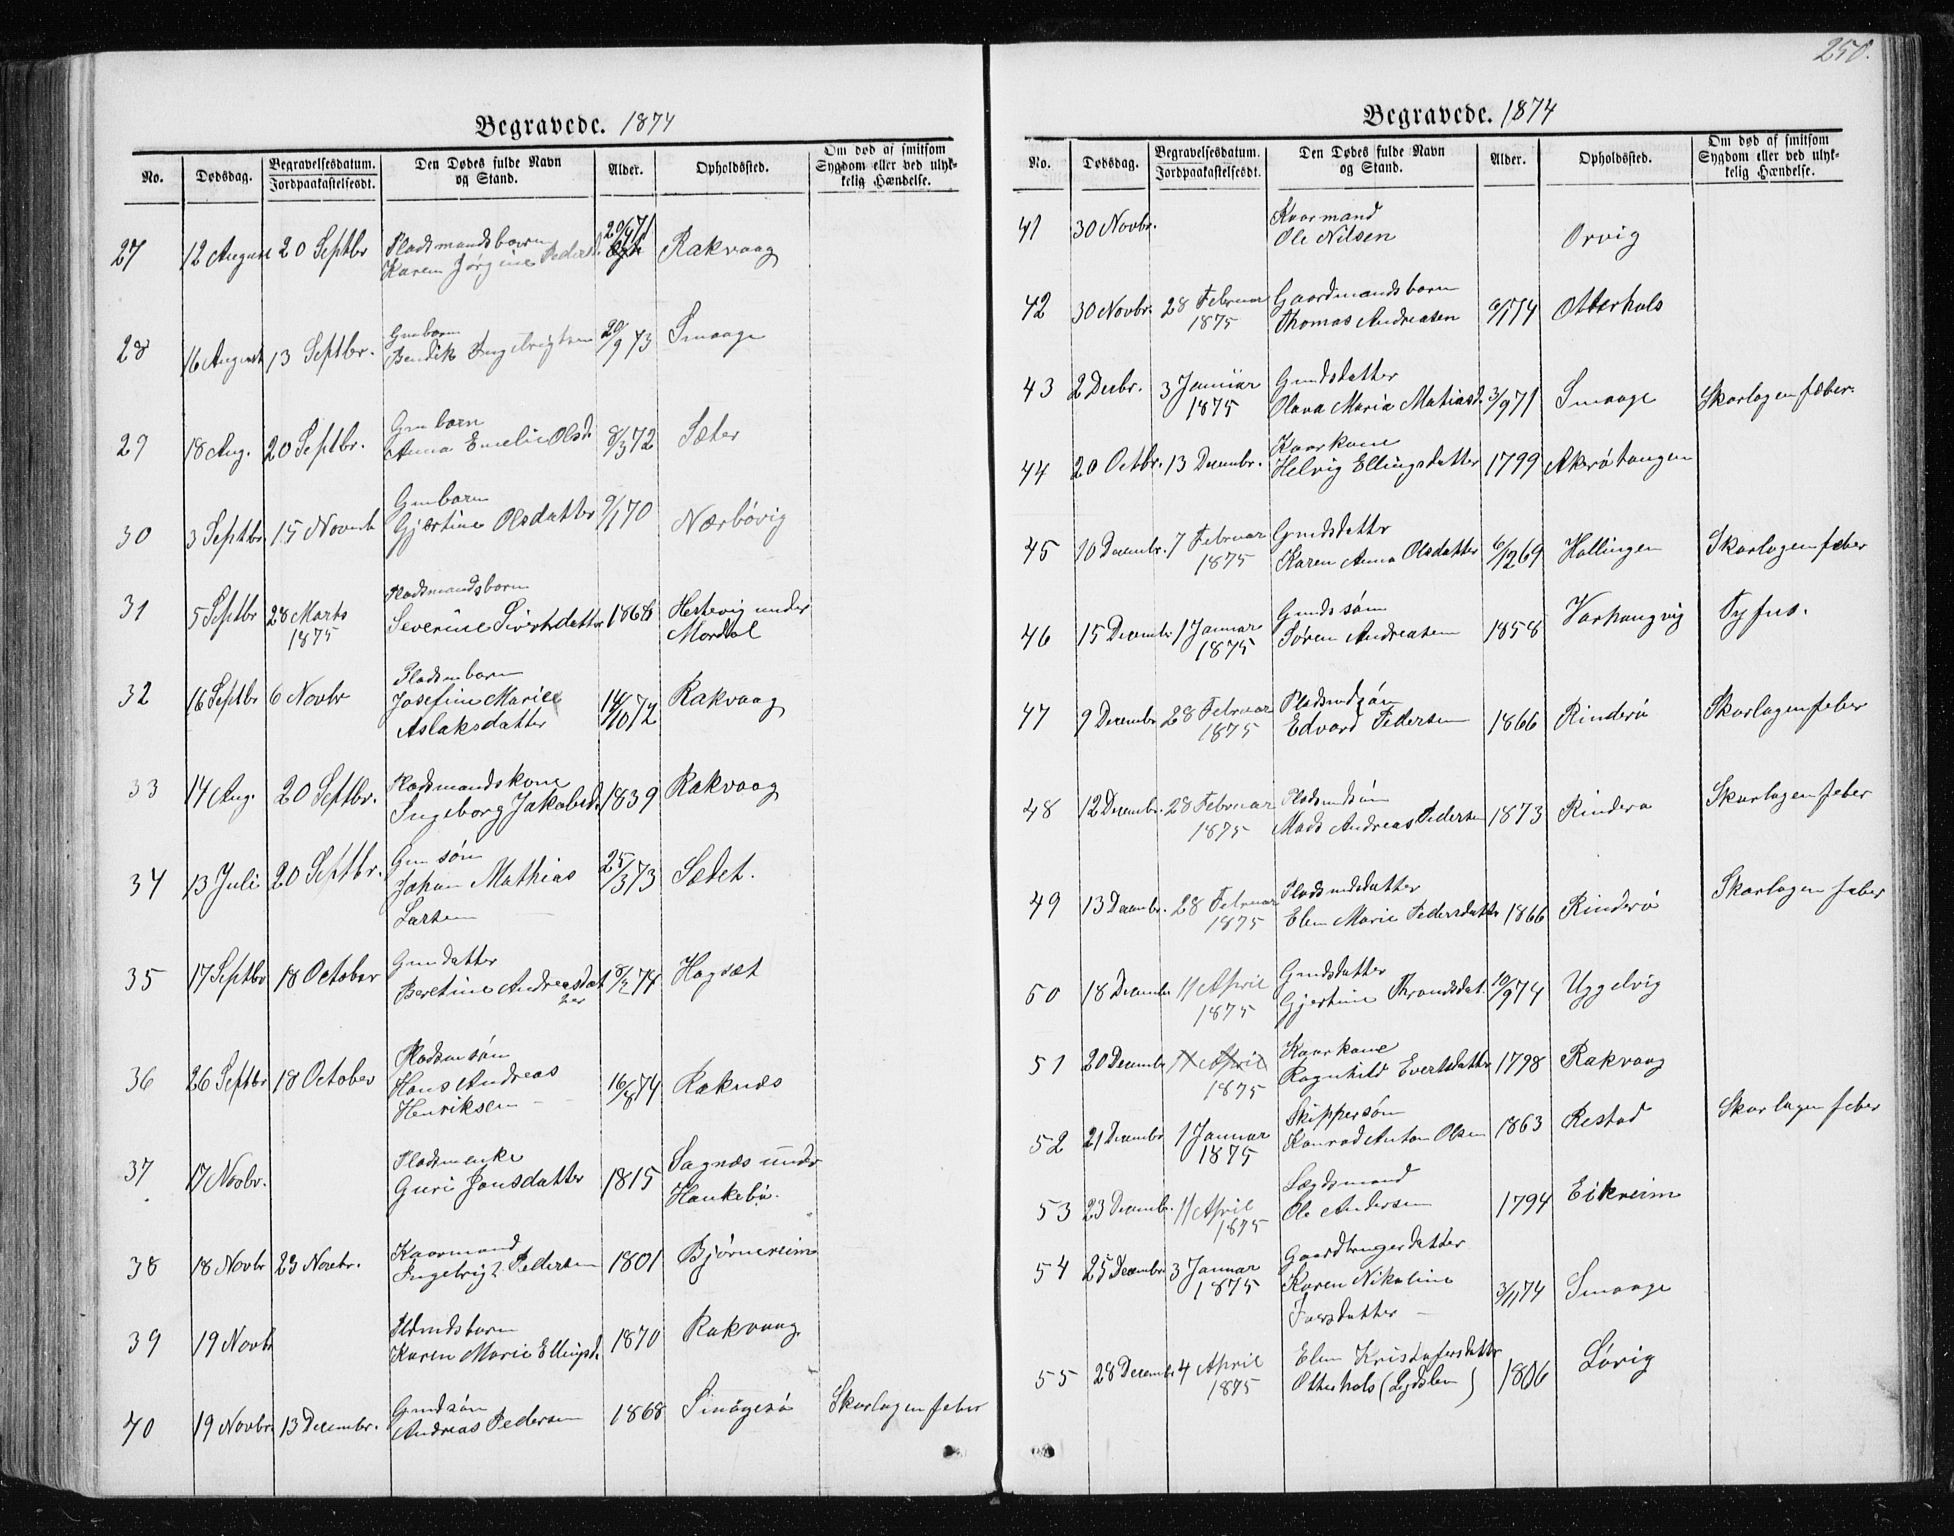 250.
Begravede. 1874
No. Dødsdag. Begravelsesdatum. Jordpaakastelsesdt. Den Dødes fulde Navn og Stand. Alder. Opholdssted. Om død af smitsom Sygdom eller ved ulykkelig Hændelse.
27 12 August 20 Septbr Pladsmandsbarn
Karen Jørgine Pedersd. 20/9 71 Rakvaag
28 16 August 13 Septbr. Gmbarn
Bendik Ingebrigtsen 20/9 73 Smaage
29 18 Aug. 20 Septbr. Gmbarn
Anna Emelie Olsd. 8/3 72 Sæter
30 3 Septbr. 15 Novemb Gmbarn
Gjertine Olsdatter 9/1 70 Nærbövig
31 5 Septbr 28 Marts 1875 Pladsmandsbarn
Severine Sivertsdatter 1868 Hestevig under Mordal
32 16 Septbr 6 Novbr Pladsmbarn
Josefine Marie
Aslaksdatter 14/10 72 Rakvaag
33 14 Aug. 20 Septbr. Pladsmandskone
Ingeborg Jakobsd. 1839 Rakvaag
34 13 Juli 20 Septbr. Gm søn
Johan Mathias
Larsen 25/3 73 Sætet.
35 17 Septbr 18 October Gmdatter
Beretine Andreasdatter 8/2 74 Hagsæt
36 26 Septbr 18 October Pladsmsøn
Hans Andreas
Henriksen 16/8 74 Raknæs
37 17 Novbr. Pladsmenke
Guri Jonsdatter 1815 Sagnæs under Haukebø.
38 18 Novbr 23 Novbr. Kaarmand
Ingebrigt Pedersen 1801 Bjørnereim
39 19 Novbr Plmdsbarn
Karen Marie Ellingsd. 1870 Rakvaag
40 19 Novbr. 13 Decembr. Gmdsøn
Andreas Pedersen 1868 Smågesø Skarlagenfeber
Begravede. 1874
No. Dødsdag. Begravelsesdatum. Jordpaakastelsesdt. Den Dødes fulde Navn og Stand. Alder. Opholdssted. Om død af smitsom Sygdom eller ved ulykkelig Hændelse.
41 30 Novbr. Kaarmand
Ole Nilsen Orvig
42 30 Novbr. 28 Februar 1875 Gaardmandsbarn
Thomas Andreasen 6/1 74 Otterhals
43 2 Decbr. 3 Januar 1875 Gmdsdatter
Olava Maria Matiasd. 3/9 71 Smaage Skarlagenfæber.
44 20 Octbr. 13 Decembr. Kaarkone
Helvig Ellingsdatter 1799 Akerötangen
45 10 Decembr. 7 Februar 1875 Gmdsdatter
Karen Anna Olsdatter 6/12 69 Hollingen Skarlagenfeber
46 15 Decembr 1 Januar 1875 Gmdssøn
Søren Andreasen 1858 Varhaugvig Tyfus.
47 9 Decembr. 28 Februar 1875 Pladsmdsøn
Edvard Pedersen 1866 Rinderö Skarlagenfeber
48 12 Decembr. 28 Februar 1875 Pladsmdsøn
Mads Andreas Pedersen 1873 Rinderø Skarlagenfeber
49 13 Decembr. 28 Februar 1875 Pladsmdsdatter
Elen Marie Pedersdatter 1866 Rinderö Skarlagenfeber
50 18 Decembr 11 April 1875 Gmdsdatter
Gjertine Throndsdat. 10/9 74 Uggelvig
51 20 Decembr 11 April 1875 Kaarkone
Ragnhild Evertsdatter 1798 Rakvaag
52 21 Decembr 1 Januar 1875 Skippersøn
Konrad Anton Olsen 1863 Restad Skarlagenfeber
53 23 Decembr. 11 April 1875 Lægdsmand
Ole Andersen 1794 Eikreim
54 25 Decembr. 3 Januar 1875 Gaardbrugerdatter
Karen Nikoline
Iversdatter 3/11 74 Smaage
55 28 Decembr 4 April 1875 Elen Kristofersdatter
Otterhals (Lægdslem) 1806 Lövig